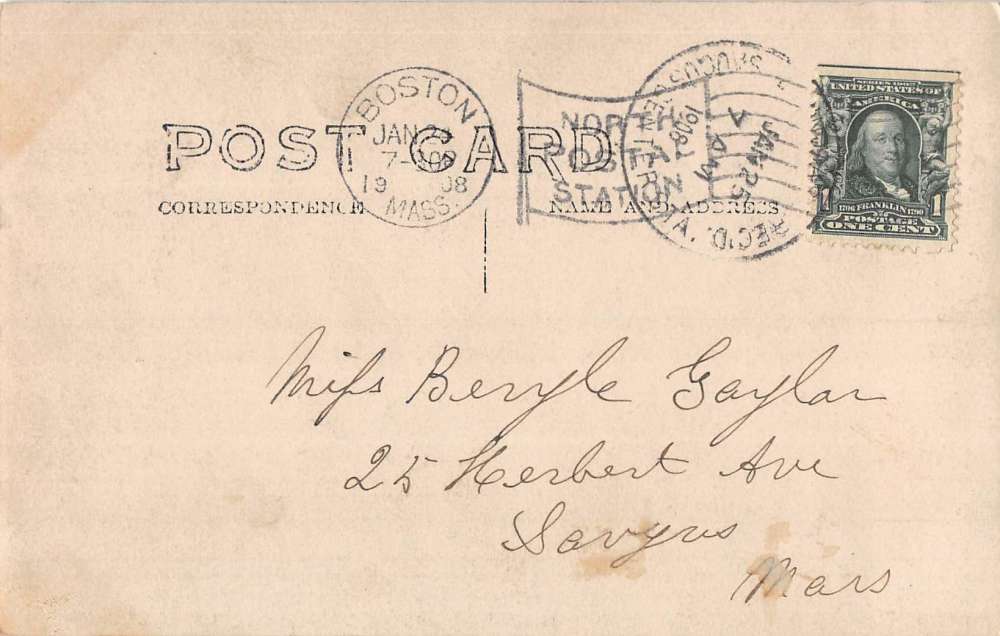 POST CARD
CORRESPONDENCE
NAME AND ADDRESS
BOSTON
JAN 24
7-
1908
MASS.
NORTH
POSTAL
STATION
SAUGUS CENTER
REC'D.
JAN 25
AM
1908
SERIES 1902
UNITED STATES OF
AMERICA
1706 FRANKLIN 1790
1 1
POSTAGE
ONE CENT
Miss Beryle Gaylar
25 Herbert Ave
Saugus
Mass